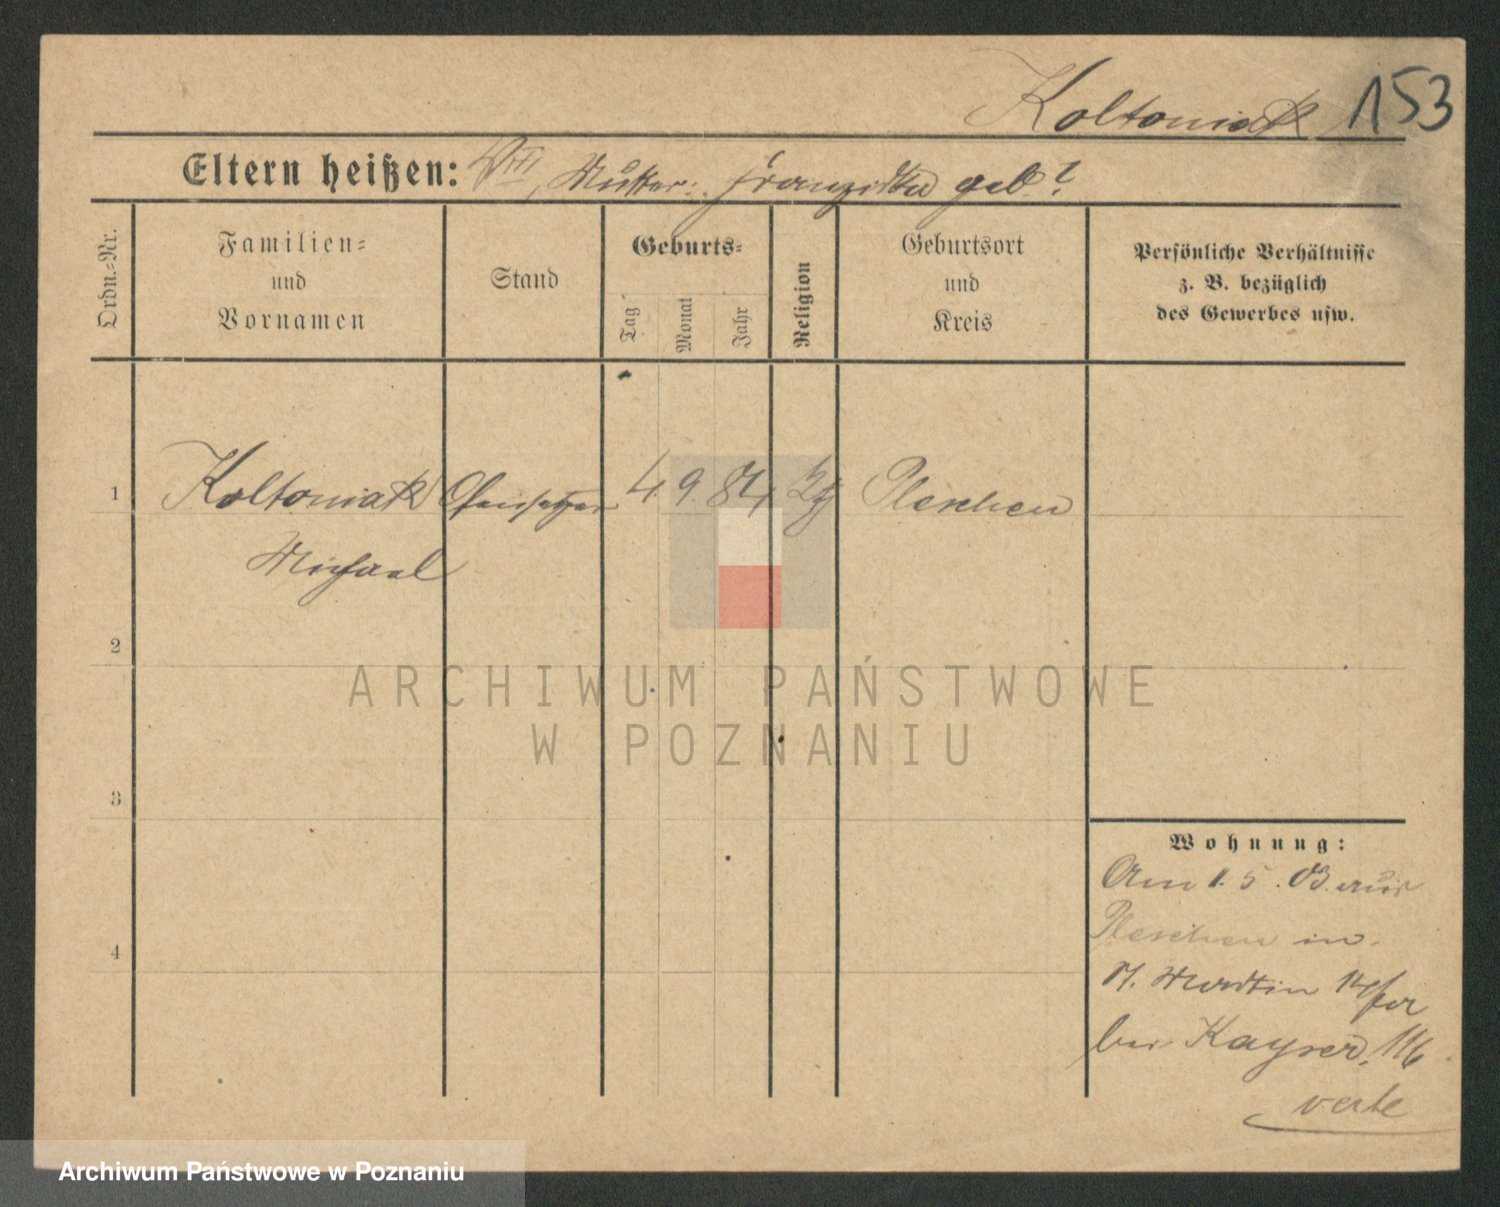 Koltoniak 153
Eltern heißen: Mutter: Franziska geb. ?
Ordn.-Nr.
Familien-
und
Vornamen
Stand
Geburts-
Tag
Monat
Jahr
Religion
Geburtsort
und
Kreis
Persönliche Verhältnisse
z. B. bezüglich
des Gewerbes usw.
1 Koltoniak Ofensetzer 4 9 84 Pleschen
Michael
2
3
4
Wohnung:
Am 1. 5. 03 aus
Pleschen in
St. Martin
bei Kayser, 116
verte
ARCHIWUM PAŃSTWOWE
W POZNANIU
Archiwum Państwowe w Poznaniu